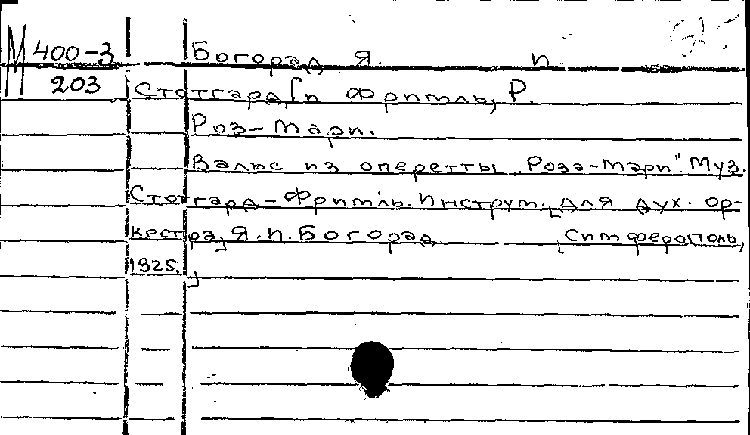 М 400-3 Богорад Я. П.
203 Стотгард [и Фримль, Р.
Роз-Мари.
Вальс из оперетты „Роза-Мари". Муз.
Стотгард-Фримль. Инструм. [для дух. ор-
кестра] Я. П. Богорад [Симферополь,
1925.]